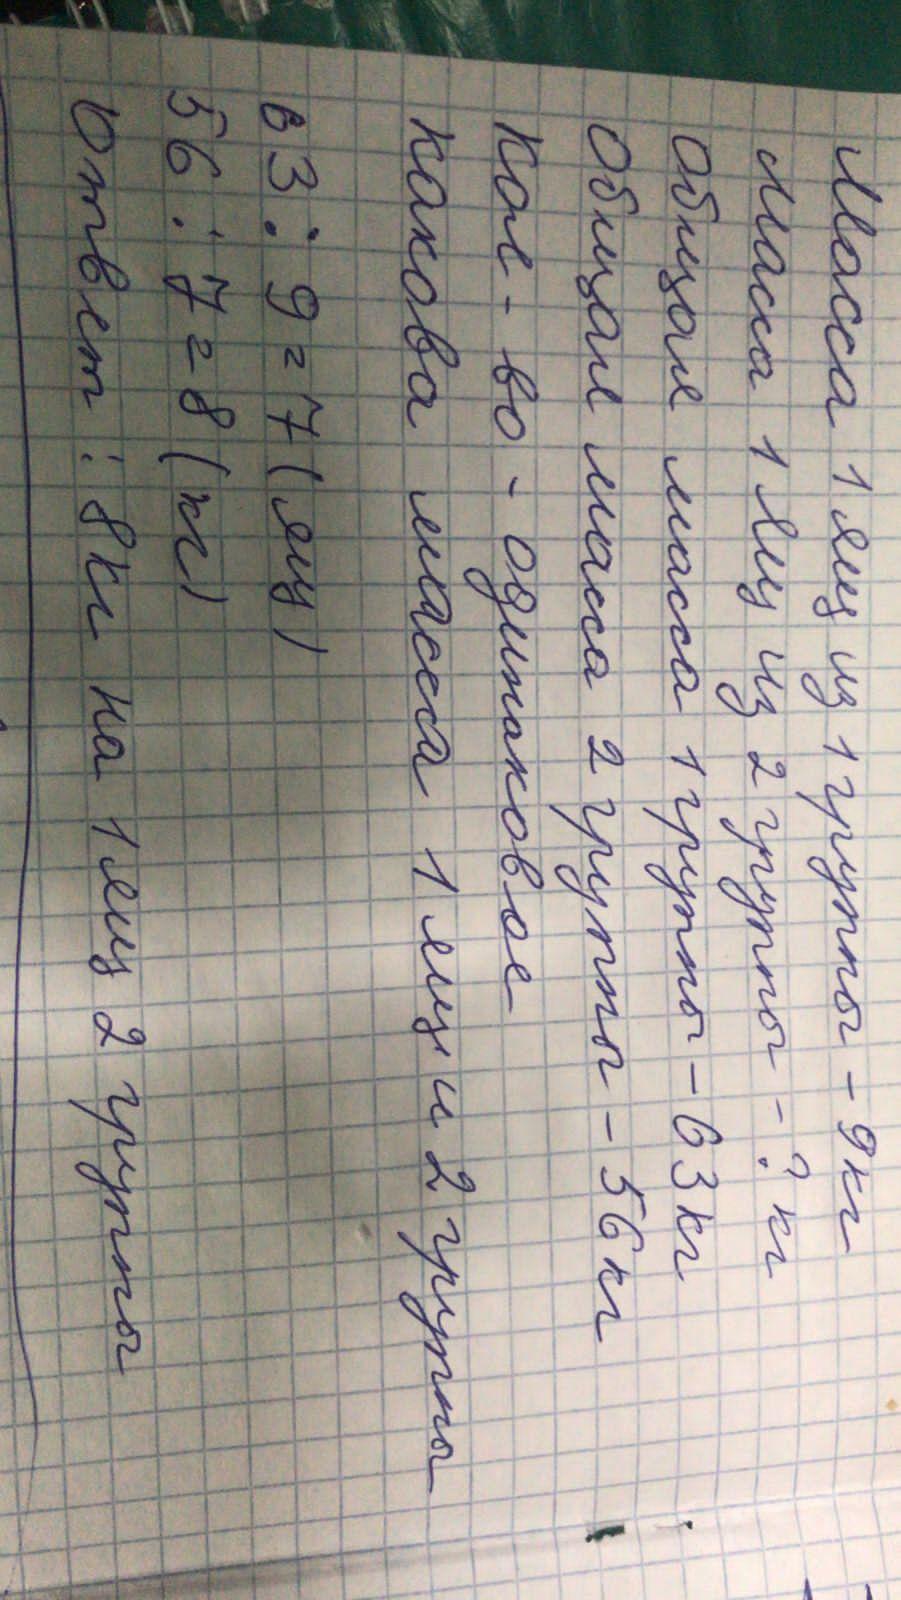 Масса 1 ящ из 1 группы - 9кг
Масса 1 ящ из 2 группы - ? кг
Общая масса 1 группы - 63кг
Общая масса 2 группы - 56кг
Кол-во - одинаковое
Какова масса 1 ящ и 2 групы
63 : 9 = 7 (ящ)
56 : 7 = 8 (кг)
Ответ : 8кг на 1 ящ 2 группы